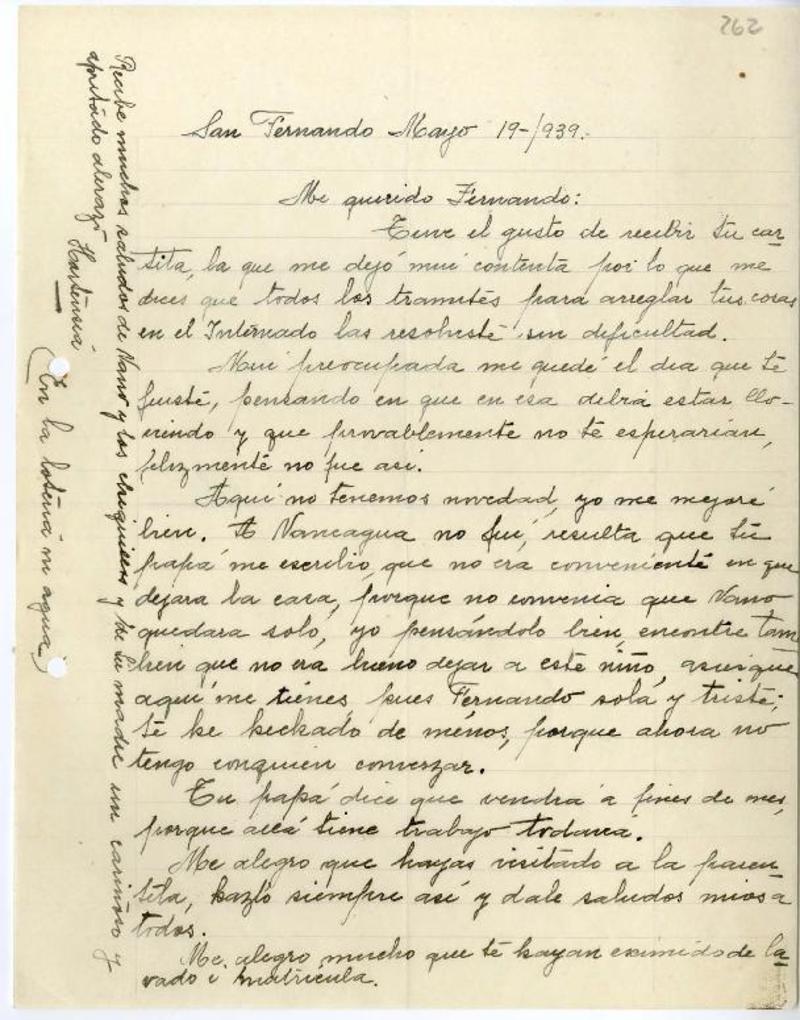 262
San Fernando Mayo 19-/939.
Me querido Fernando:
Tuve el gusto de recibir tu car-
tita, la que me dejó mui contenta por lo que me
dices que todos los tramités para arreglar tus cosas
en el Internado las resolvisté sin dificultad.
Mui preocupada me quedé el dia que té
fuisté, pensando en que en esa debía estar llo-
viendo y que provablemente no té esperarían,
felizmenté no fue así.
Aquí no tenemos novedad, yo me mejoré
bien. A Nancagua no fuí, resulta que tú
papá me escribio, que no era convenienté en que
dejara la casa, porque no convenia que Nano
quedara solo, yo pensándolo bien, encontre tam
bien que no era bueno dejar a esté niño, asiesque
aquí me tiénes, pues Fernando sola y tristé;
té he hechado de ménos, porque ahora no
tengo conquien converzar.
Tu papá dice que vendra a fines de mes,
porque allá tiene trabajo todavía.
Me alegro que hayas visitado a la paren-
téla, hazlo siempre así y dale saludos mios a
todos.
Me alegro mucho que té hayan eximido de la-
vado i matrícula.
Recibe muchos saludos de Nano y los chiquillos y de tu madre un cariñoso y
apretado abrazo
Hortensia
(En la lotería ni agua)